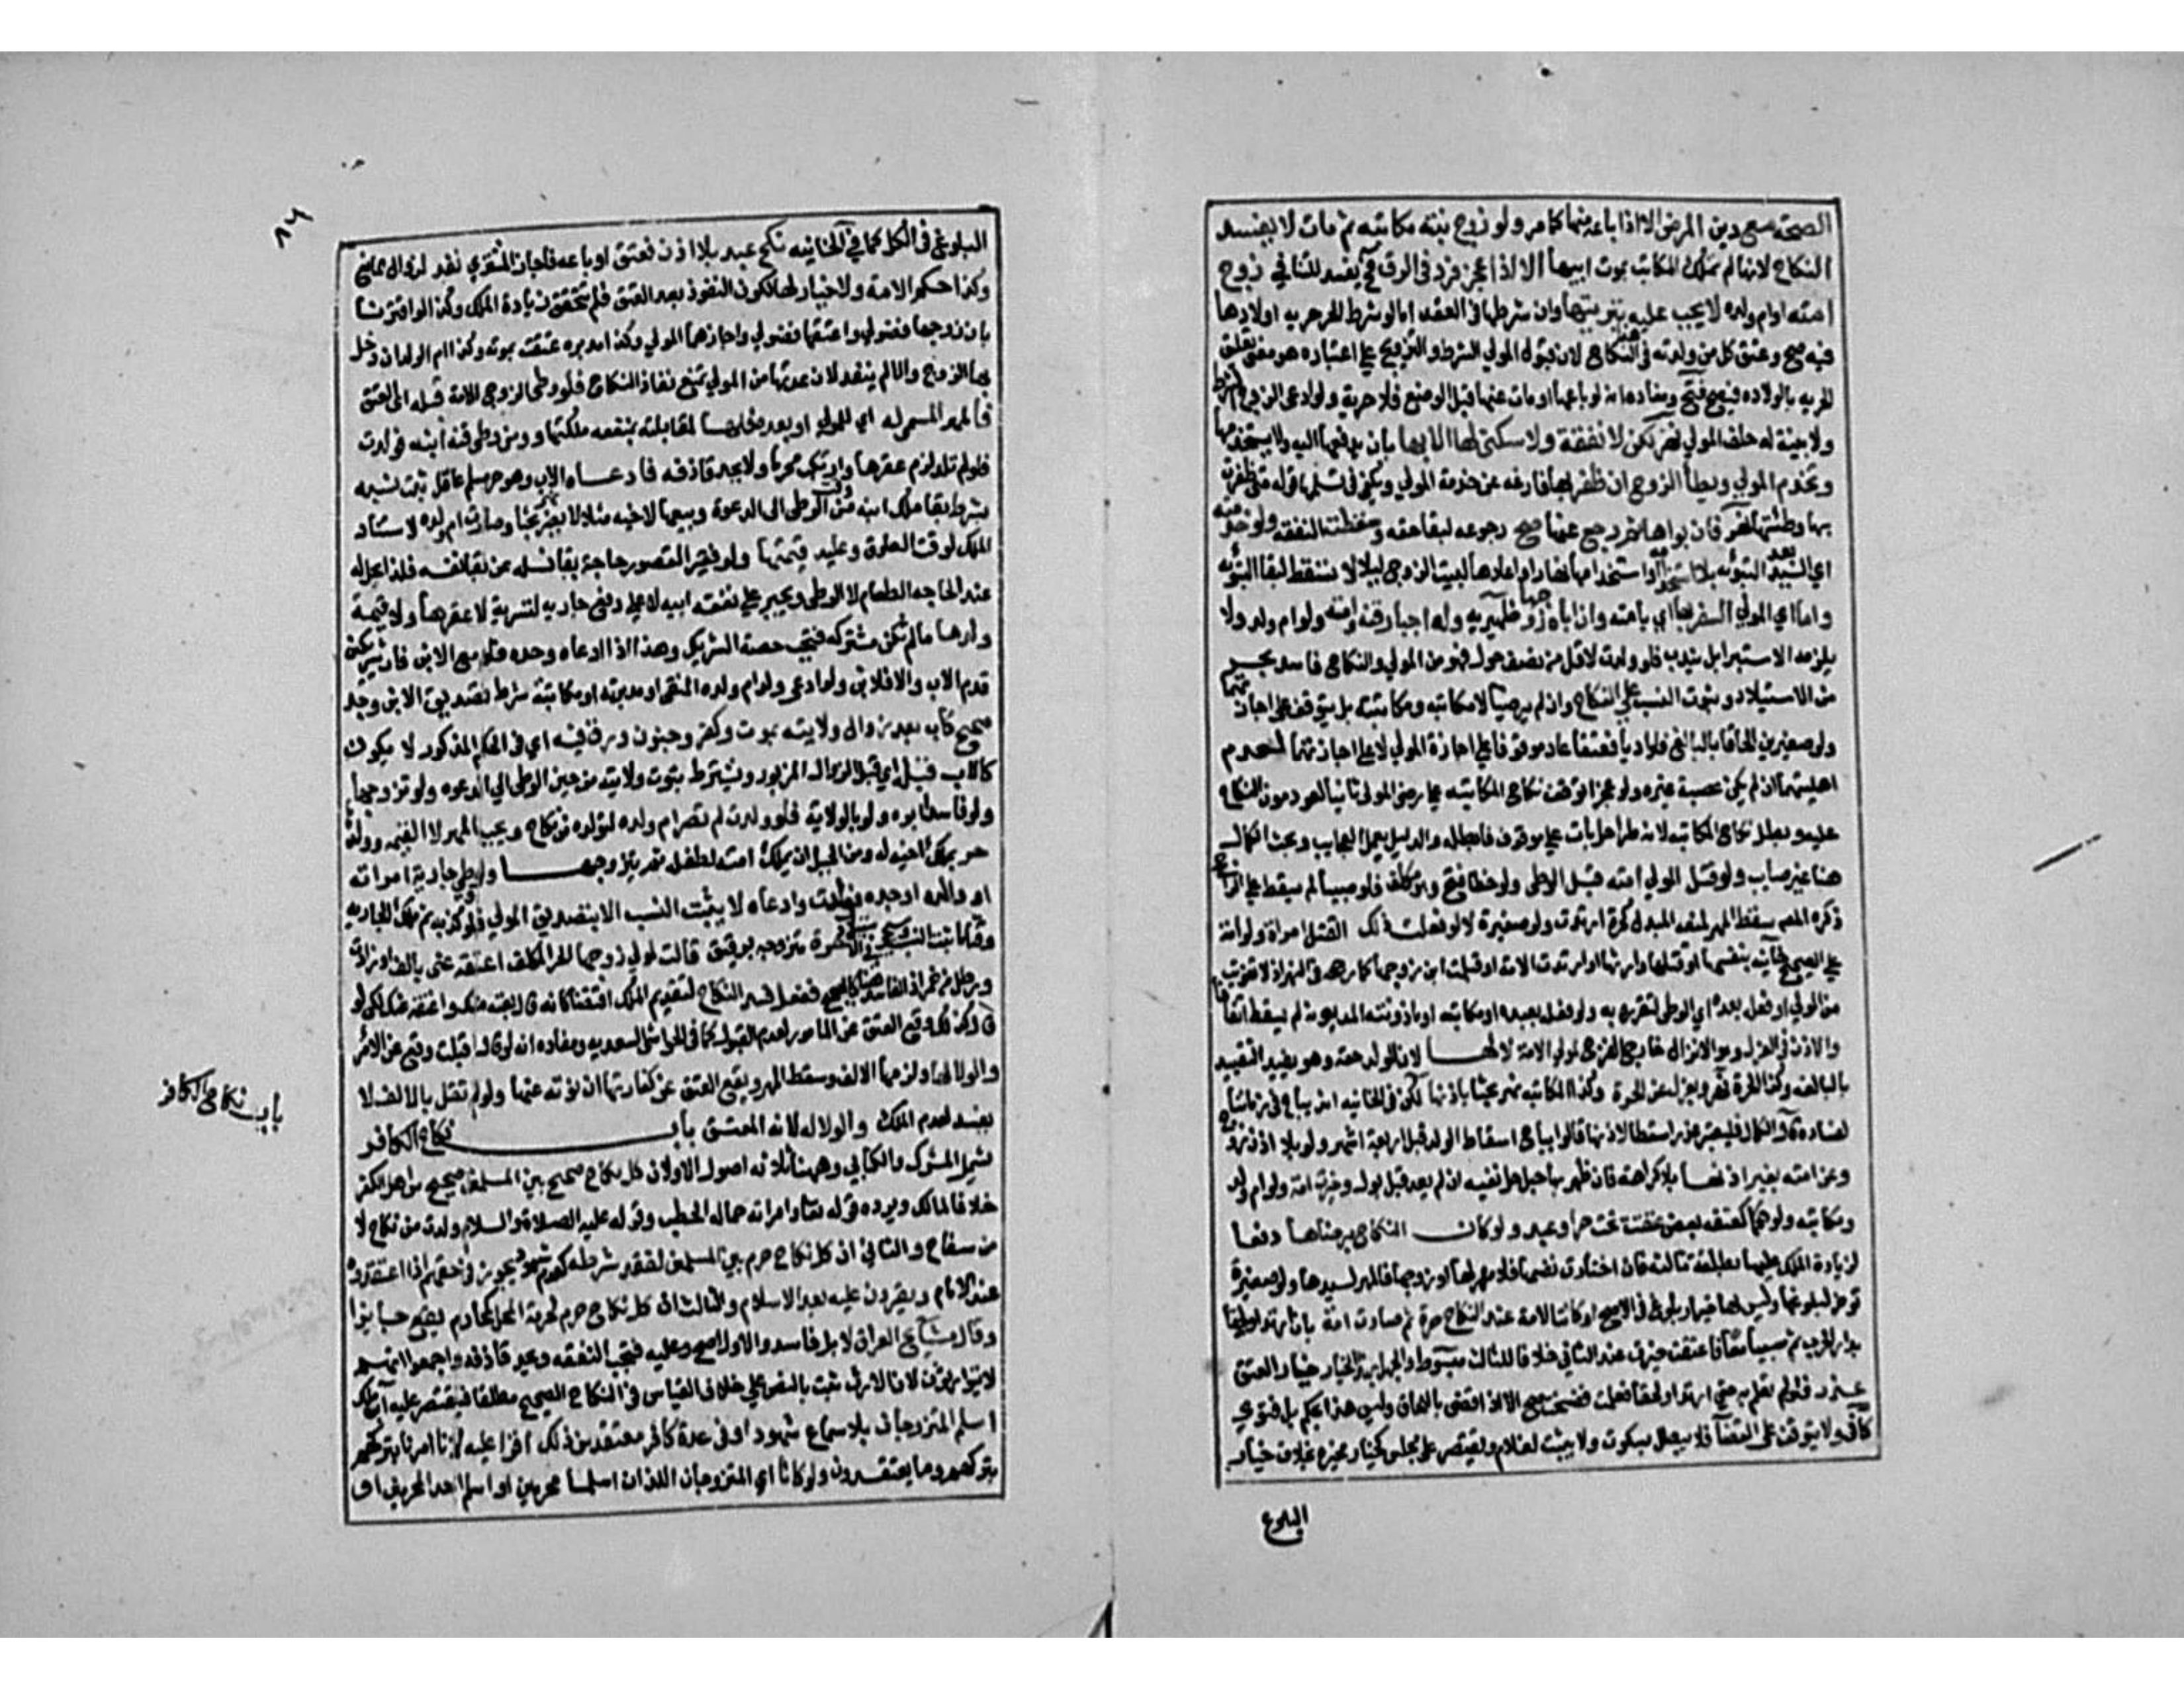 الصحة مع دين المرض الا اذا باعه منها كما مر ولو زوج بنته مكاتبه ثم مات لا يفسد
النكاح لانها لم تملك المكاتب بموت ابيها الا اذا عجز فرد في الرق فح يفسد للتنافي زوج
امته او ام ولده لا يجب عليه تبوئتها وان شرطها في العقد اما لو شرط الحر حرية اولادها
فيه صح وعتق كل من ولدته في هذا النكاح لان قبول المولي الشرط والتزويج علي اعتباره هو معني تعليق
الحريه بالولاده فيصح فتح ومفاده انه لو باعها او مات عنها قبل الوضع فلا حرية ولو ادعى الزوج الشرط
ولا بينة له حلف المولي نهر لكن لا نفقة ولا سكنى لها الا بها بان يدفعها اليه ولا يستخدمها
وتخدم المولي ويطأ الزوج ان ظفر بها فارغه عن خدمة المولي ويكفي في تسليمها قوله متى ظفرت
بها وطئتها نهر فان بواها ثم رجع عنها صح رجوعه لبقا حقه وسقطت النفقه ولو خدمته
اي السيد بعد التبوئه بلا استخدامه او استخدامها نهارا واعادها لبيت الزوج ليلا لا تسقط لبقا التبوئه
وله اي المولي السفر بها اي بامته وان ابا الزوج ظهيريه وله اجبار قنه وامته ولو ام ولد ولا
يلزمه الاستبرا بل يندب فلو ولدت لاقل من نصف حول فهو من المولي والنكاح فاسد بحر
من الاستيلاد وثبوت النسب علي النكاح وان لم يرضيا لا مكاتبه ومكاتبته بل يتوقف على اجازتهما
ولو صغيرين الحاقا بالبالغ فلو اديا فعتقا عاد موقوفا علي اجازة المولي لا علي اجازتهما لعدم
اهليتهما ان لم يكن عصبة غيره ولو عجزا توقف نكاح المكاتبه علي رضي المولي ثانيا لعود مون النكاح
عليه وبطل نكاح المكاتبه لانه طرا حل بات علي موقوف فابطله والدليل يعمل العجايب وبحث الكمال
هنا غير صاب ولو قتل المولي امته قبل الوطي ولو خطا فتح وهو مكلف فلو صبيا لم يسقط علي الراجح
ذكره المصـ سقط المهر لمنعه المبدل كحرة ارتدت ولو صغيرة لا لو فعلت ذلك القتل امراة ولو امة
علي الصحيح خانيه بنفسها او قتلها وارثها او ارتدت الامة او قبلت ابن زوجها كما رجحه في النهر اذ لا تفويت
من المولي او فعل بعده اي الوطي لتقرره به ولو فعل بعبده او مكاتبه او ماذونته المديونة لم يسقط اتفاقا
والاذن في العزل وهو الانزال خارج الفرج لمولي الامة لا لها لان الولد حقه وهو يفيد التقييد
بالبالغه وكذا الحرة نهر ويعزل عن الحرة وكذا المكاتبه نهر بحثا باذنها لكن في الخانيه انه يباح في زماننا
لفساده قال الكمال فليعتبر عذرا مسقطا لاذنها وقالوا يباح اسقاط الولد قبل اربعة اشهر ولو بلا اذن زوج
وعن امته بغير اذنها بلا كراهة فان ظهر بها حبل حل نفيه ان لم يعد قبل بول وخيرت امة ولو ام ولد
ومكاتبه ولو حكما كمعتقة بعض عتقت تحت حر او عبد ولو كان النكاح برضاها دفعا
لزيادة الملك عليها بطلقة ثالثه فان اختارت نفسها فلا مهر لها او زوجها فالمهر لسيدها ولو صغيرة
توخر لبلوغها وليس لها خيار بلوغ في الاصح او كانت الامة عند النكاح حرة ثم صارت امة بان ارتدا ولحقا
بدار الحرب ثم سبيا معا فاعتقت خيرت عند الثاني خلافا للثالث مبسوط والجهل بهذا الخيار خيار العتق
عذر فلو لم تعلم به حتي ارتدا ولحقا فعلمت ففسخت صح الا اذا قضى باللحاق وليس هذا بحكم بل فتوي
كافي ولا يتوقف على القضا فلا يبطل بسكوت ولا يثبت لغلام ويقتصر علي مجلس كخيار مخيرة بخلاف خيار
البلوغ
٨٦
البلوغ في الكل كما في الخانيه نكح عبد بلا اذن فعتق او باعه فاجاز المشتري نفذ لزوال المانع
وكذا حكم الامة ولا خيار لها لكون النفوذ بعد العتق فلم تتحقق زيادة الملك وكذا لو اقترنا
بان زوجها فضولي واعتقها فضولي واجازهما المولي وكذا مدبره عتقت بموته وكذا ام الولد ان دخل
بها الزوج والا لم ينفذ لان عدتها من المولي تمنع نفاذ النكاح فلو وطي الزوج الامة قبله اي العتق
فالمهر المسمي له اي للمولي او بعده فلها لمقابلته بمنفعه ملكتها ومن وطي قنة ابنه فولدت
فلو لم تلد لزم عقرها وارتكب محرما ولا يحد قاذفه فادعاه الاب وهو حر مسلم عاقل ثبت نسبه
بشرط بقا ملك ابنه من وقت الوطى الى الدعوة وبيعها لاخيه مثلا لا يضر نهر بحثا وصارت ام ولده لاستناد
الملك لوقت العلوق وعليه قيمتها ولو فقيرا لقصور حاجة بقا نسله عن بقا نفسه فلذا يحل له
عند الحاجه الطعام لا الوطى ويجبر علي نفقة ابيه لا علي دفع جاريه لتسريه لا عقرها ولا قيمة
ولدها ما لم تكن مشتركه فتجب حصة الشريك وهذا اذا ادعاه وحده فلو مع الابن فان شريكين
قدم الاب والا فالابن ولو ادعى ولد ام ولده المنفي او مدبرته او مكاتبته شرط تصديق الابن وجد
صحيح كاب بعد زوال ولايته بموت وكفر وجنون ورق فيه اي في الحكم المذكور لا يكون
كالاب قبله اي قبل الزوال المزبور ويشترط ثبوت ولايته من حين الوطى الي الدعوه ولو تزوجها
ولو فاسدا ابوه ولو بالولاية فلو ولدت لم تصر ام ولده لتولده من نكاح ويجب المهر لا القيمه وولدها
حر بملك اخيه له ومن الحيل ان يملك امته لطفله ثم يتزوجها ولو وطي جارية امراته
او والده او جده فولدت وادعاه لا يثبت النسب الا بتصديق المولي فلو كذبه ثم ملك الجاريه
وقتا ما ثبت النسب وسيجي في الاستيلاد حرة متزوجه برقيق قالت لمولي زوجها الحر المكلف اعتقه عني بالف او زادت
ورطل من خمر اذ الفاسد هنا كالصحيح ففعل فسد النكاح لتقدم الملك اقتضا كانه قال بعته منك واعتقته عنك لكن لو
قال كذلك وقع العتق عن المامور لعدم القبول كما في الحواشي السعديه ومفاده انه لو قال قبلت وقع عن الامر
والولا لها ولزمها الالف وسقط المهر ويقع العتق عن كفارتها ان نوته عنها ولو لم تقل بالالف لا
يفسد لعدم الملك والولا له لانه المعتق باب نكاح الكافر
يشمل المشرك والكتابي وههنا ثلاثه اصول الاول ان كل نكاح صحيح بين المسلمين صحيح من اهل الكفر
خلافا لمالك ويرده قوله تعا وامراته حمالة الحطب وقوله عليه الصلاة والسلام ولدت من نكاح لا
من سفاح والثاني ان كل نكاح حرم بين المسلمين لفقد شرطه كعدم شهود يجوز في حقهم اذا اعتقدوه
عند الامام ويقرون عليه بعد الاسلام والثالث ان كل نكاح حرم لحرمة المحل كمحارم يقع جايزا
وقال مشايخ العراق لا بل فاسد والاول اصح وعليه فتجب النفقه ويحد قاذفه واجمعوا انهم
لا يتوارثون لان الارث ثبت بالنص علي خلاف القياس في النكاح الصحيح مطلقا فيقتصر عليه ابن ملك
اسلم المتزوجان بلا سماع شهود او في عدة كافر معتقدين ذلك اقرا عليه لانا امرنا بتركهم
بتركهم وما يعتقدون ولو كانا اي المتزوجان اللذان اسلما محرمين او اسلم احد المحرمين او
باب نكاح الكافر